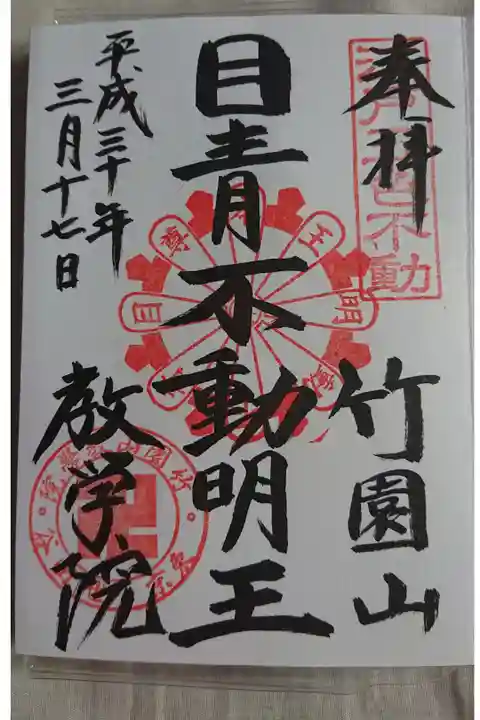 奉拝
竹園山
目青不動明王
平成三十年
三月十七日
教学院